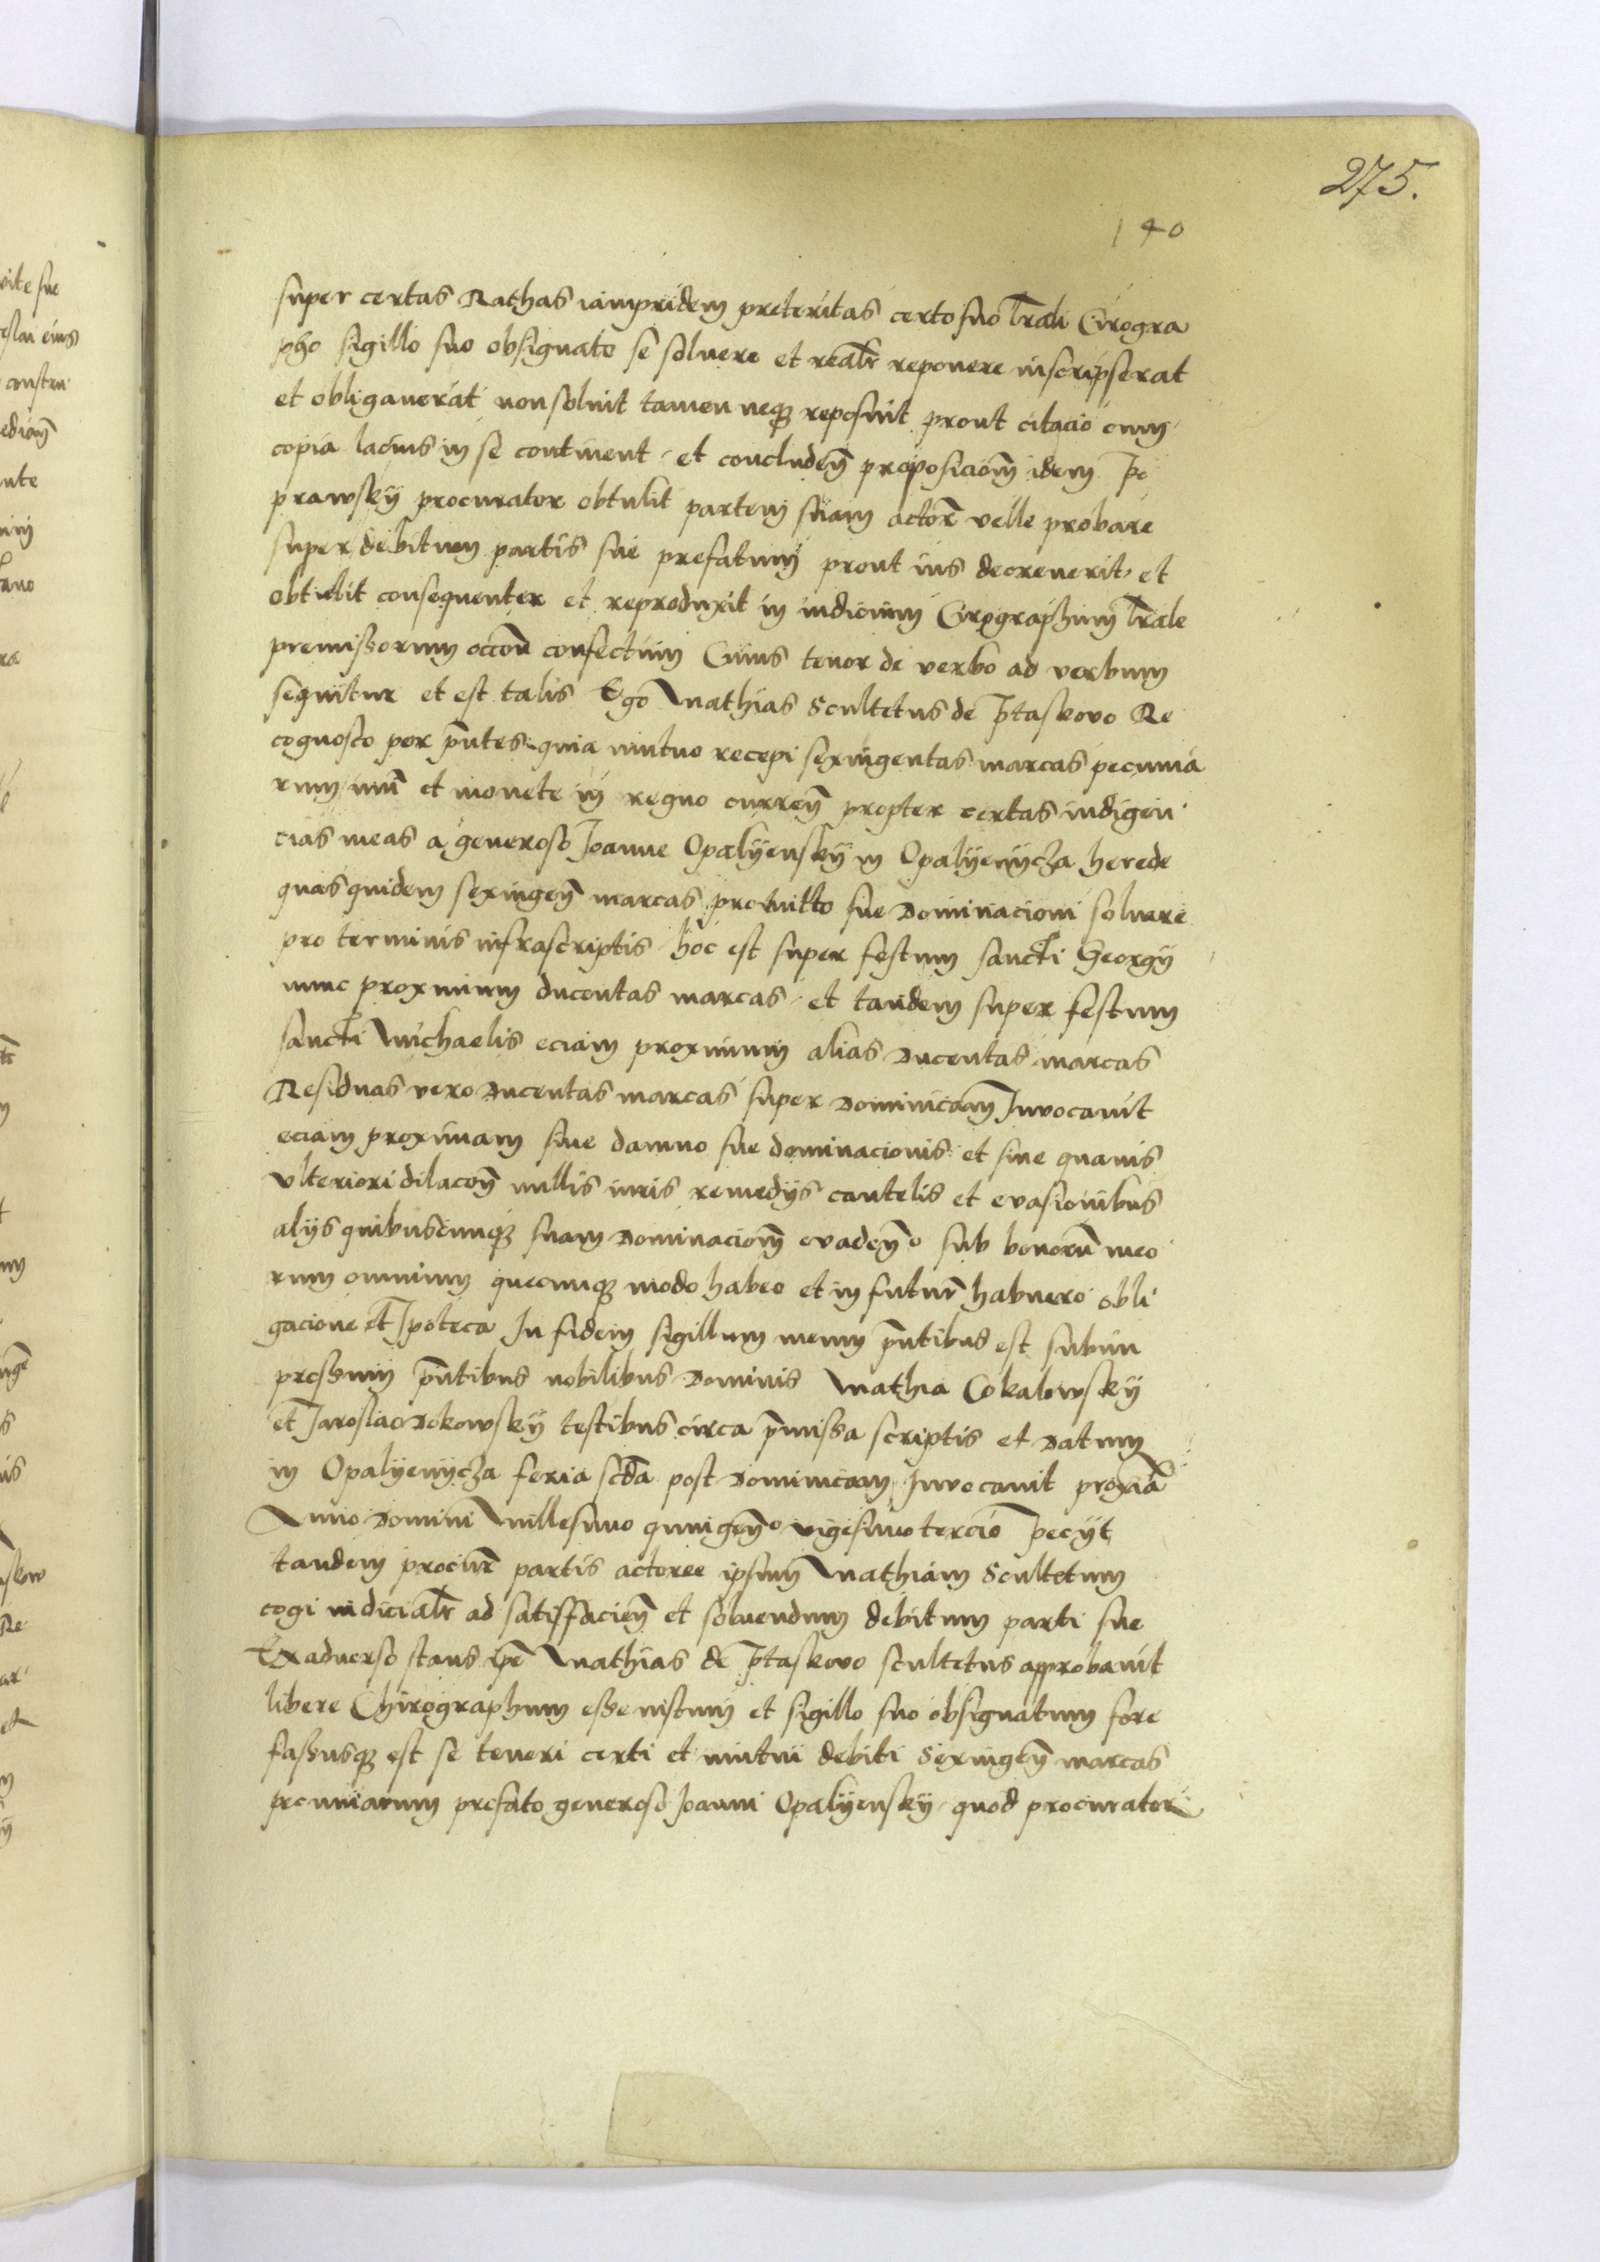 275.
140
super certas Rathas iampridem preteritas certo suo l̄rali Cirogra
pho sigillo suo obsignato se soluere et realr̄ reponere inscripserat
et obligauerat non soluit tamen neqꝫ reposuit prout citacio cum
copia lacius in se continent et concluden̄ proposicion̄ idem Po
prawskÿ procurator obtulit partem suam actor̄ velle probare
super debitum partis sue prefatum prout ius decreuerit et
obtulit consequenter et reproduxit in iudicium Cirographum l̄rale
premissorum occōn confectum Cuius tenor de verbo ad verbum
sequitur et est talis Ego Mathias Scultetus de Ptaskovo Re
cognosco per p̄ntes quia mutuo recepi sexingentas marcas pecunia
rum num̄ et monete in regno curren̄ propter certas indigen
cias meas a generoso Joanne Opalÿenskÿ in Opalÿenÿcza herede
quas quidem sexingen̄ marcas promitto sue Dominacioni soluere
pro terminis infrascriptis hoc est super festum sancti Georgÿ
nunc proximum ducentas marcas et tandem super festum
sancti Michaelis eciam proximum alias Ducentas marcas
Residuas vero Ducentas marcas super Dominicam Inuocauit
eciam proximam sine damno sue dominacionis et sine quauis
vlteriori dilacōn̄ nullis iuris remedÿs cautelis et evasionibus
alÿs quibuscunqꝫ suam Dominacion̄ evaden̄o sub bonorū meo
rum omnium quecunqꝫ modo habeo et in futur̄ habuero obli
gacione et Ipoteca In fidem sigillum meum p̄ntibus est subim
pressum p̄ntibus nobilibus Dominis Mathia Cokalowskÿ
et Jaroslao Dokowskÿ testibus circa p̄missa scriptis et Datum
in Opalÿenÿcza feria scd̄a post Dominicam Inuocauit proxiā
Anno Domini Millesimo quingen̄o vigesimo tercio Peciÿt
tandem procur̄ partis actoree ipsum Mathiam Scultetum
cogi iudicialr̄ ad satisfacien̄ et soluendum debitum parti sue
Ex aduerso stans ip̄e Mathias de Ptaskovo scultetus approbauit
libere Chirographum esse iustum et sigillo suo obsignatum fore
fassusqꝫ est se teneri certi et mutui debiti Sexingen̄ marcas
pecuniarum prefato generoso Joanni Opalÿenskÿ quod procurator